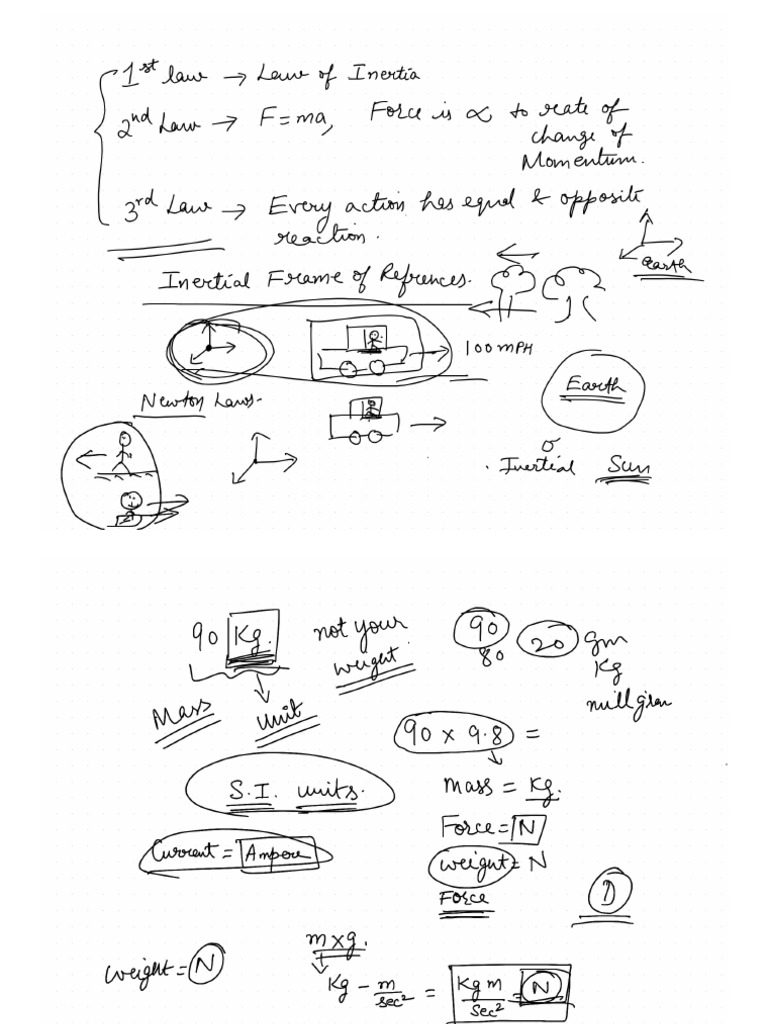 1st law → Law of Inertia
2nd Law → F = ma, Force is ∝ to rate of
change of
Momentum.
3rd Law → Every action has equal & opposite
reaction.
earth
Inertial Frame of Refrences.
100 MPH
Earth
Newton Laws.
Inertial Sun
90 Kg. not your
weight.
90 20 gm
80
Kg
Mass unit
90 × 9.8 =
S.I. units.
mass = Kg.
Force = N
Current = Ampere
weight = N
Force
D
m×g.
weight = N
Kg - m/sec² = Kg m/Sec² = N